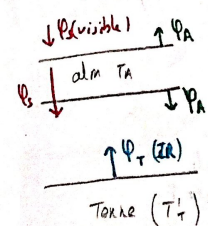 φs(visible) φA
atm TA
φs φA
φT (IR)
Terre (T'T)